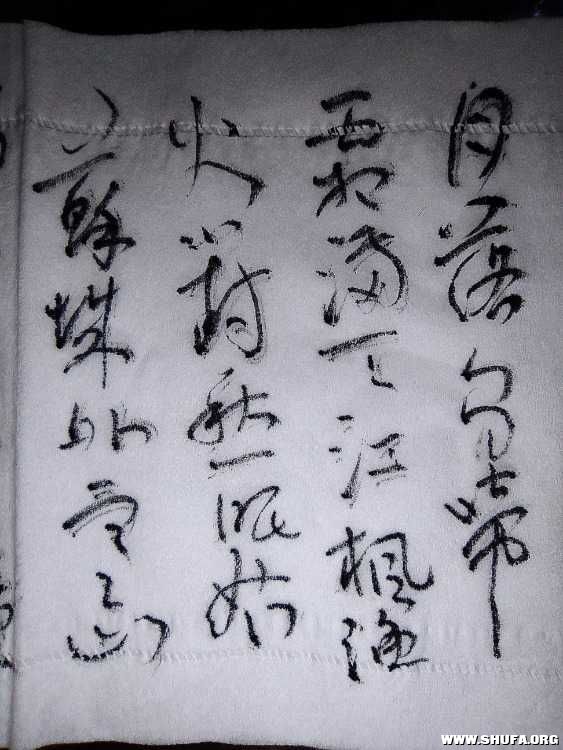 月落烏啼
霜滿天江楓漁
火對愁眠姑
蘇城外寒山
WWW.SHUFA.ORG